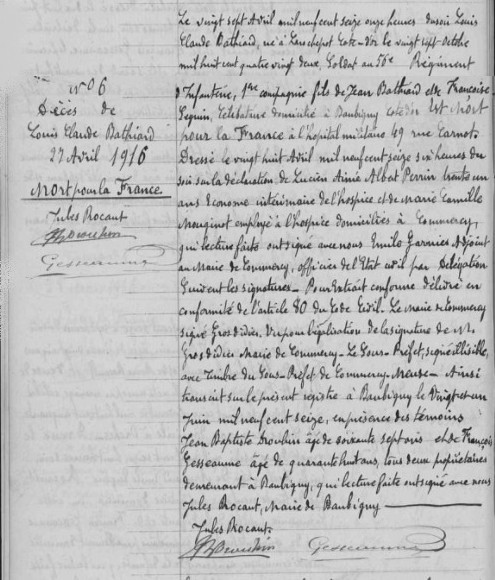 N° 6
Décès de
Louis Claude Bathiard
27 Avril 1916
Mort pour la France
Jules Rocaut
Gesseaume
Le vingt sept Avril mil neuf cent seize onze heures du soir Louis
Claude Bathiard, né à Larochepot Côte-d'or le vingt sept Octobre
mil huit cent quatre vingt deux, Soldat au 56e Régiment
d'Infanterie, 1ère compagnie fils de Jean Bathiard et de Françoise
Seguin, Célibataire domicilié à Baubigny côte d'or Est Mort
pour la France à l'hopital militaire 49 rue Carnot.
Dressé le vingt huit Avril mil neuf cent seize six heures du
soir sur la déclaration de Lucien Aimé Albert Perrin trente un
ans Econome intérimaire de l'hospice et de Marie Camille
Mouginot employé à l'hospice domiciliés à Commercy,
qui lecture faite ont signé avec nous Emile Garnier Adjoint
au Maire de Commercy, officier de l'Etat civil par Délégation
Suivent les signatures - Pour Extrait conforme délivré en
conformité de l'article 80 du Code Civil. Le Maire de Commercy
signé Grosdidier. Vu pour légalisation de la signature de M.
Grosdidier Maire de Commercy - Le Sous-Préfet, signé illisible,
avec timbre du Sous-Préfet de Commercy - Meuse - Ainsi
transcrit sur le présent registre à Baubigny le Vingt et un
Juin mil neuf cent seize, en présence des témoins
Jean Baptiste Drouhin âgé de soixante sept ans et de François
Gesseaume âgé de quarante huit ans, tous deux propriétaires
demeurant à Baubigny, qui lecture faite ont signé avec nous
Jules Rocaut, Maire de Baubigny
Jules Rocaut
Gesseaume